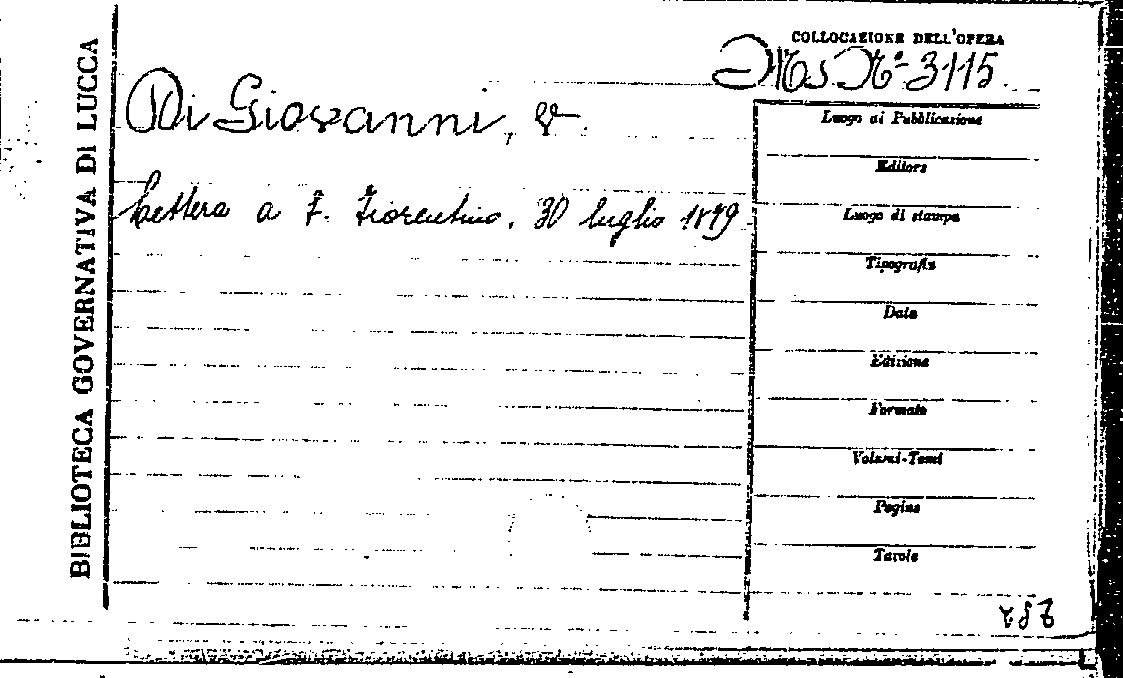 BIBLIOTECA GOVERNATIVA DI LUCCA
COLLOCAZIONE DELL'OPERA
Ms. N° 3115
Di Giovanni, V.
Lettera a F. Fiorentino. 30 luglio 1879
Luogo di Pubblicazione
Editore
Luogo di stampa
Tipografia
Data
Edizione
Formato
Volumi-Tomi
Pagine
Tavole